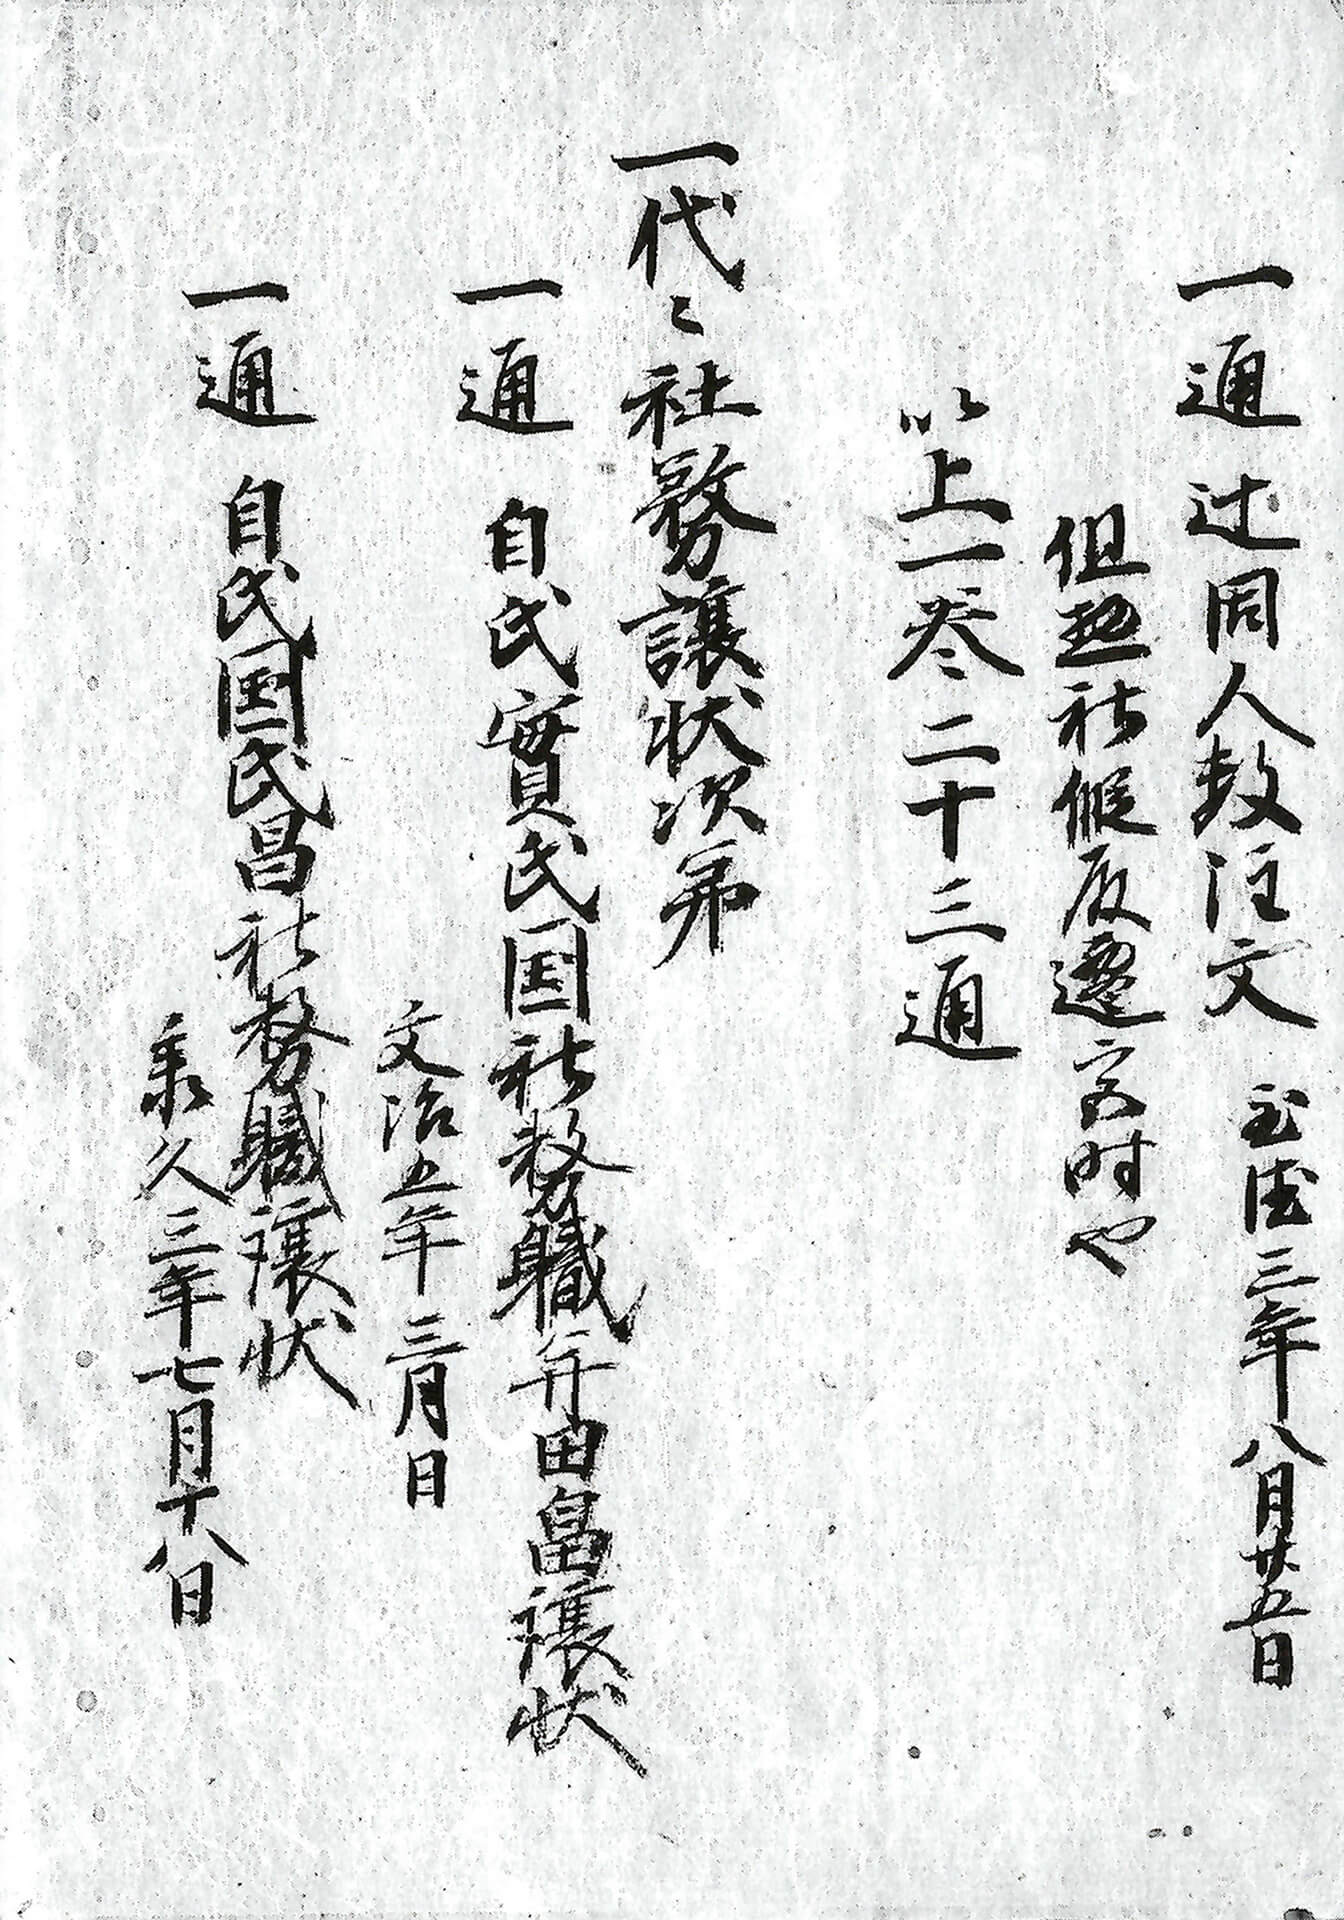 一通 辻同人数注文 至徳三年八月廿五日
但惣社假殿遷宮時也
以上一巻二十三通
一代々社務譲状次第
一通 自氏實氏国社務職并田畠譲状
文治五年三月日
一通 自氏国氏昌社務職譲状
承久三年七月十八日